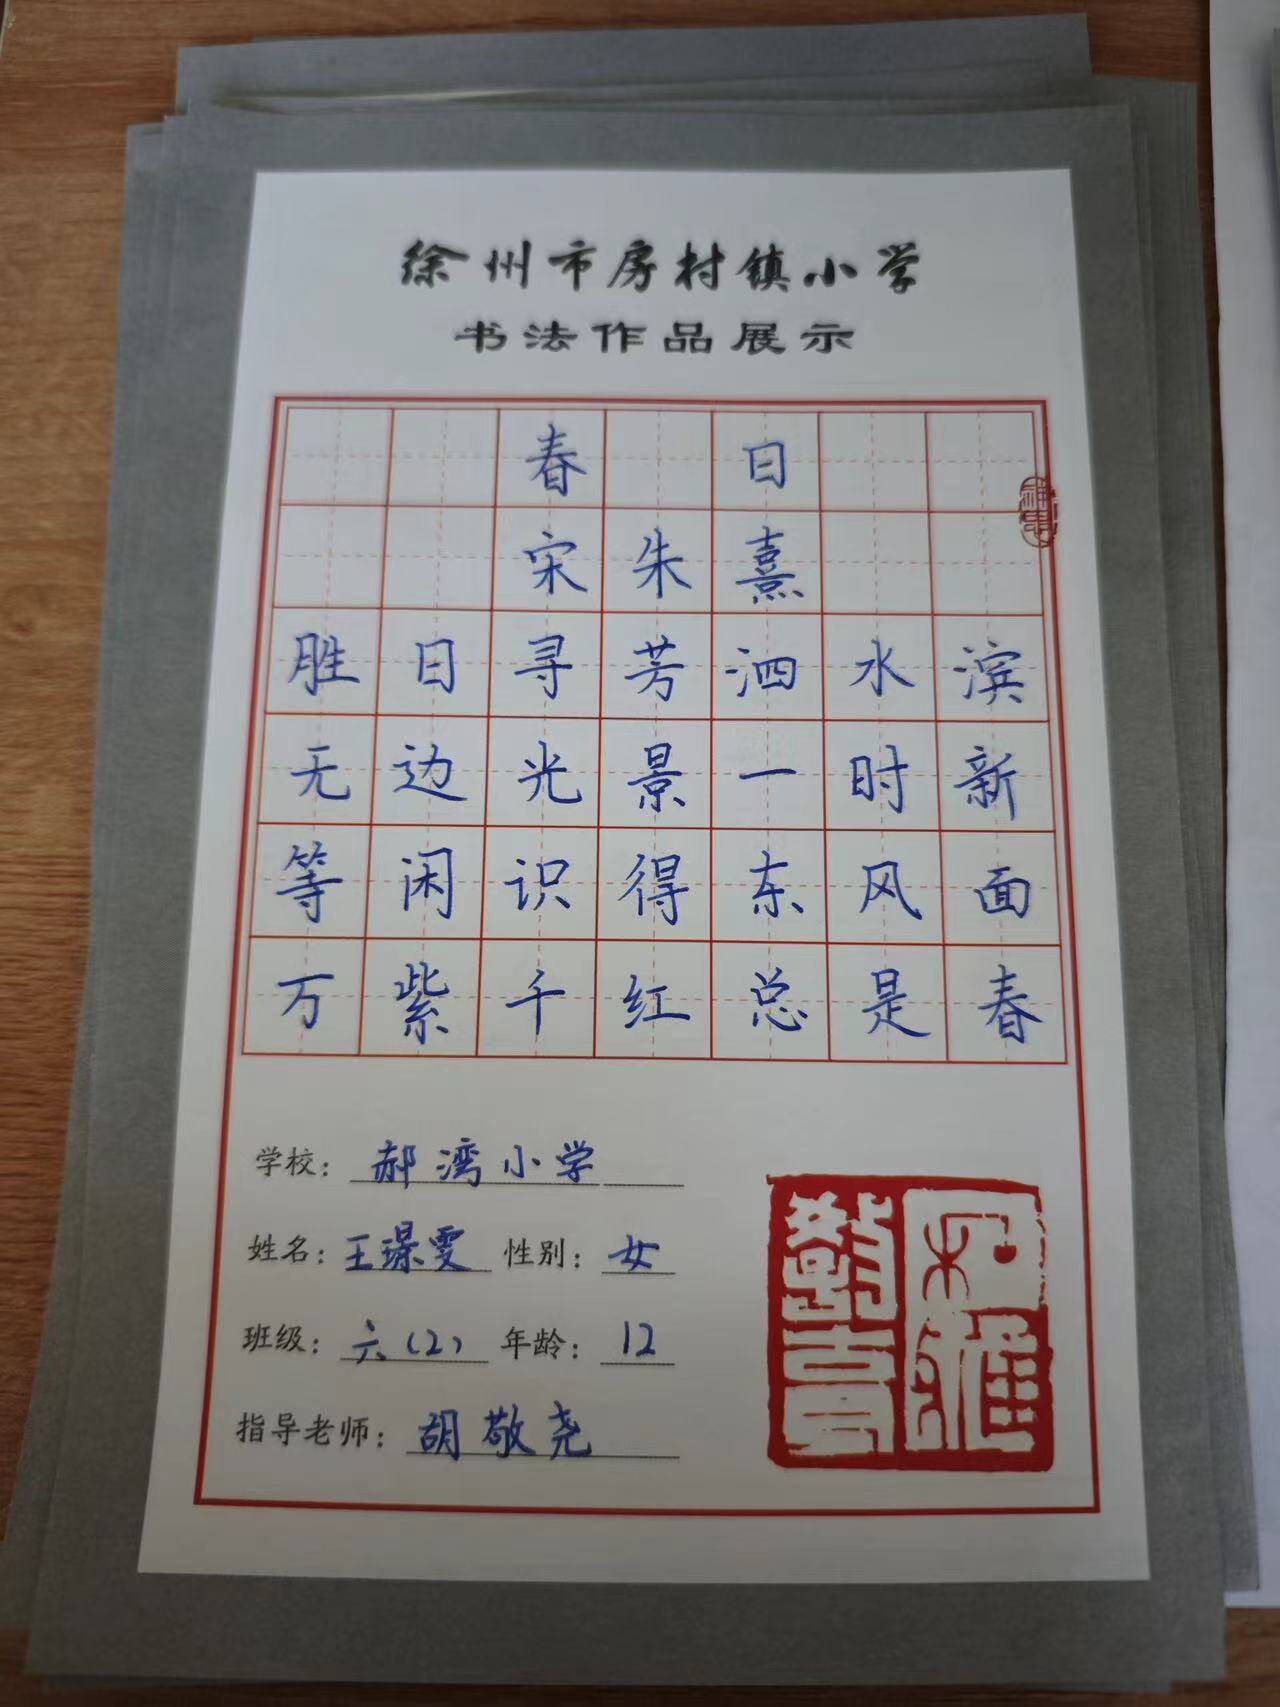 徐州市房村镇小学
书法作品展示
春 日
宋朱熹
胜日寻芳泗水滨
无边光景一时新
等闲识得东风面
万紫千红总是春
学校：郝湾小学
姓名：王璟雯 性别：女
班级：六（2） 年龄：12
指导老师：胡敬尧